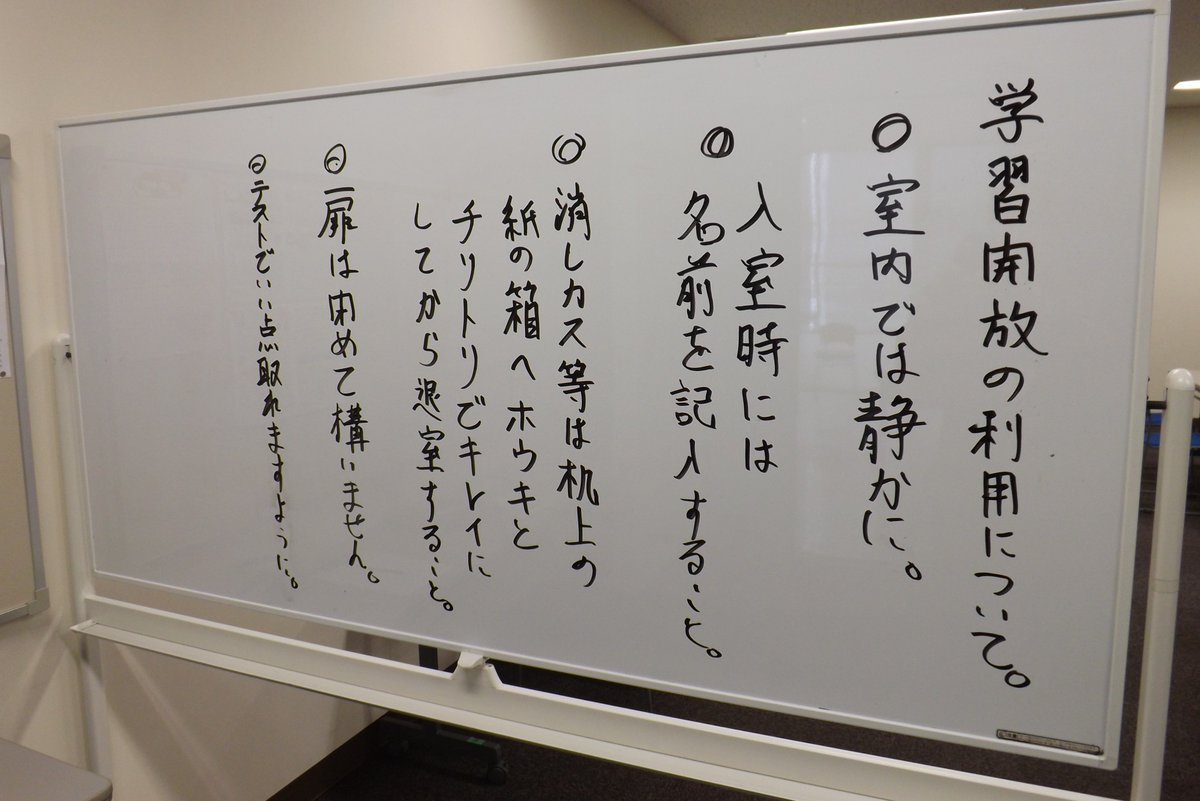 学習開放の利用について。
◎室内では静かに。
◎入室時には
名前を記入すること。
◎消しカス等は机上の
紙の箱へホウキと
チリトリでキレイに
してから退室すること。
◎扉は閉めて構いません。
◎テストでいい点取れますように。